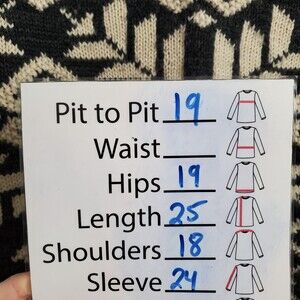 Pit to Pit 19
Waist
Hips 19
Length 25
Shoulders 18
Sleeve 24